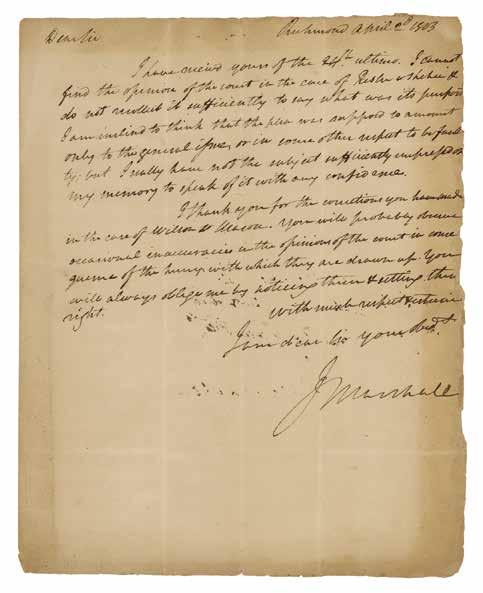 Dear Sir Richmond April 2d 1803
I have received yours of the 24th ultimo. I cannot
find the opinion of the court in the case of &
do not recollect it sufficiently to say what was its purport
I am inclind to think that the plea was supposd to amount
only to the general issue, or in some other respect to be faul-
ty; but I really have not the subject sufficiently impressd on
my memory to speak of it with any confidence.
I thank you for the corrections you have made
in the case of Wilson & Mason. You will probably observe
occasional inaccuracies in the opinions of the court in conse
quence of the hurry with which they are drawn up. You
will always oblige me by noticing them & setting them
right.
with much respect & esteem
I am dear Sir your Obedt
J Marshall